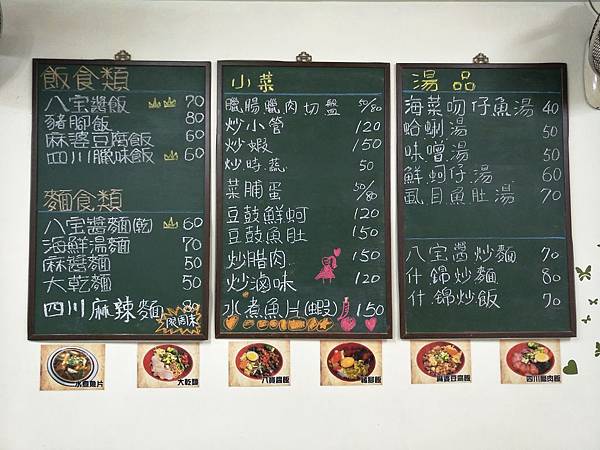 飯食類
八宝醬飯 70
豬腳飯 80
麻婆豆腐飯 60
四川臘味飯 60
麵食類
八宝醬麵(乾) 60
海鮮湯麵 70
麻醬麵 50
大乾麵 50
四川麻辣麵 80
小菜
臘腸臘肉切盤 50/80
炒小管 120
炒蝦 150
炒時蔬 50
菜脯蛋 50/80
豆鼓鮮蚵 120
豆鼓魚肚 150
炒腊肉 150
炒滷味 120
水煮魚片(蝦) 150
湯品
海菜吻仔魚湯 40
蛤蜊湯 50
味噌湯 50
鮮蚵仔湯 60
虱目魚肚湯 70
八宝醬炒麵 70
什錦炒麵 80
什錦炒飯 70
水煮魚片
大乾麵
八寶醬飯
豬腳飯
麻婆豆腐飯
四川臘肉飯